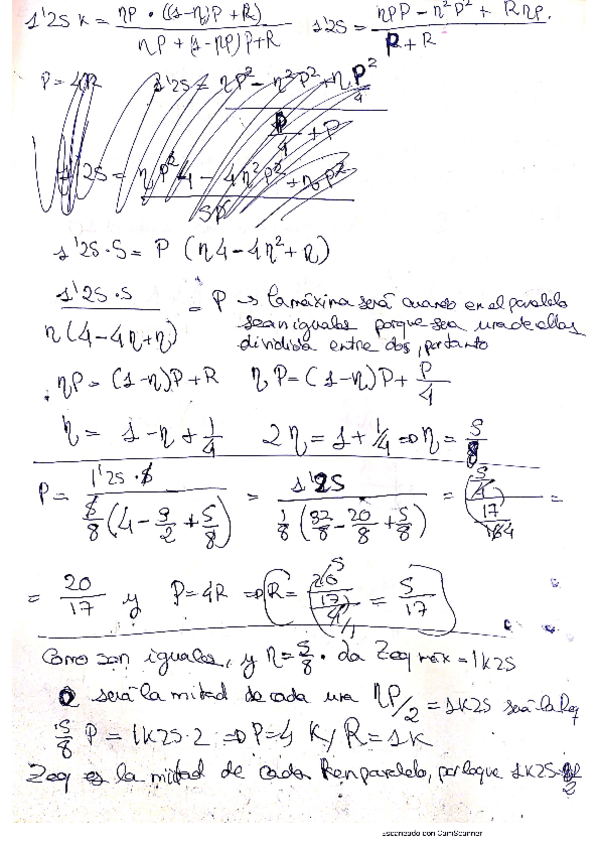 1'25 K = ηP · ((1-η)P + R) / ηP + (1-ηP)P+R    1'25 = ηPP - η²P² + RηP. / P + R
P = 4R    1'25 = ηP² - η²P² + ηP²/4 / P/4 + P
1'25 = ηP²4 - 4η²P² + ηP² / 5P
1'25·5 = P (η4 - 4η² + η)
1'25·5 / η(4-4η+η) = P → la máxima será cuando en el paralelo
sean iguales porque sea una de ellas
dividida entre dos, por tanto
ηP = (1-η)P + R    ηP = (1-η)P + P/4
η = 1 - η + 1/4    2η = 1 + 1/4 ⇒ η = 5/8
P = 1'25·5 / 5/8 (4 - 9/2 + 5/8) = 1'25 / 1/8 (32/8 - 20/8 + 5/8) = 5/4 / 17/64 =
= 20/17 y P = 4R ⇒ R = 20/17 / 4/1 = 5/17
Como son iguales, y η = 5/8 · da Zeq máx = 1K25
será la mitad de cada una ηP/2 = 1K25 será la Req
5/8 P = 1K25·2 ⇒ P = 4 K / R = 1K
Zeq es la mitad de cada R en paralelo, por lo que 1K25 ·